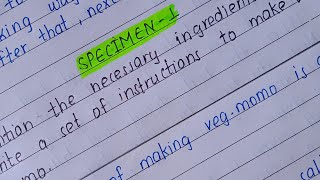 king wa
fter that, next
SPECIMEN-1
tion the necessary ingredien
ite a set of instructions to make
mo.
of making veg.momo is